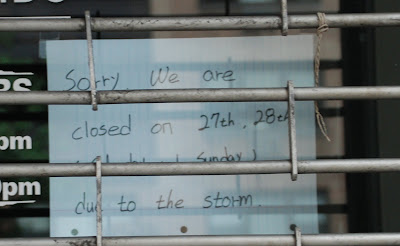 Sorry. We are
closed on 27th, 28th
Sunday)
due to the storm.
pm
0pm